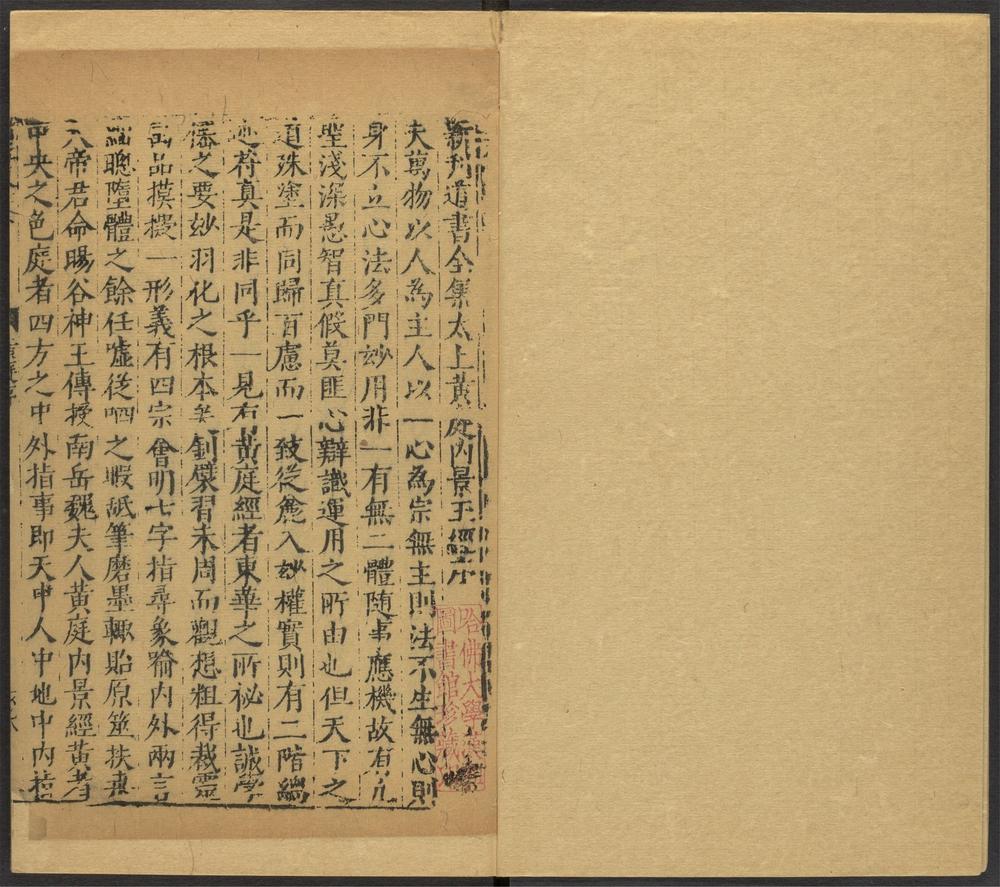 新刊道書全集太上黃庭內景玉經序
夫萬物以人為主人以一心為宗無主則法不生無心則
身不立心法多門妙用非一有無二體隨事應機故有凡
聖淺深愚智真假莫匪心辯識運用之所由也但天下之
道殊塗而同歸百慮而一致從麄入妙權實則有二階綿
迹符真是非同乎一見右黃庭經者東華之所祕也誠學
僊之要妙羽化之根本矣釗襞習未周而觀想粗得裁靈
品摸擬一形義有四宗會明七字指尋象喻內外兩言
聰墮體之餘任噓從呬之暇舐筆磨墨輒貽原筮扶桑
大帝君命暘谷神王傳授南岳魏夫人黃庭內景經黃者
中央之色庭者四方之中外指事即天中人中地中內指
哈佛大學漢和
圖書館珍藏印